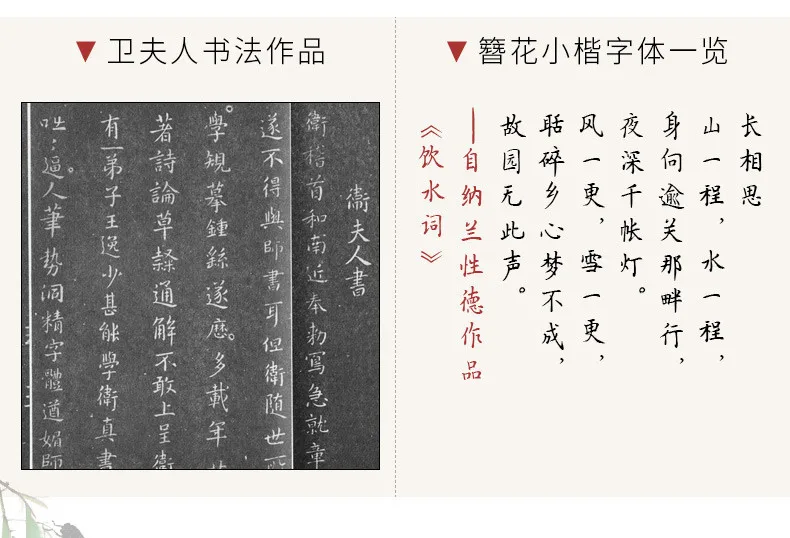 卫夫人书法作品
衞夫人書
衞稽首和南近奉勅寫急就章
遂不得與師書耳但衞隨世
學規摹鍾繇遂歷。多載年
著詩論草隸通解不敢上呈衞
有一弟子王逸少甚能學衞真書
咄:逼。人筆勢洞精字體遒媚師
簪花小楷字体一览
长相思
山一程，水一程，
身向逾关那畔行，
夜深千帐灯。
风一更，雪一更，
聒碎乡心梦不成，
故园无此声。
—自纳兰性德作品
《饮水词》